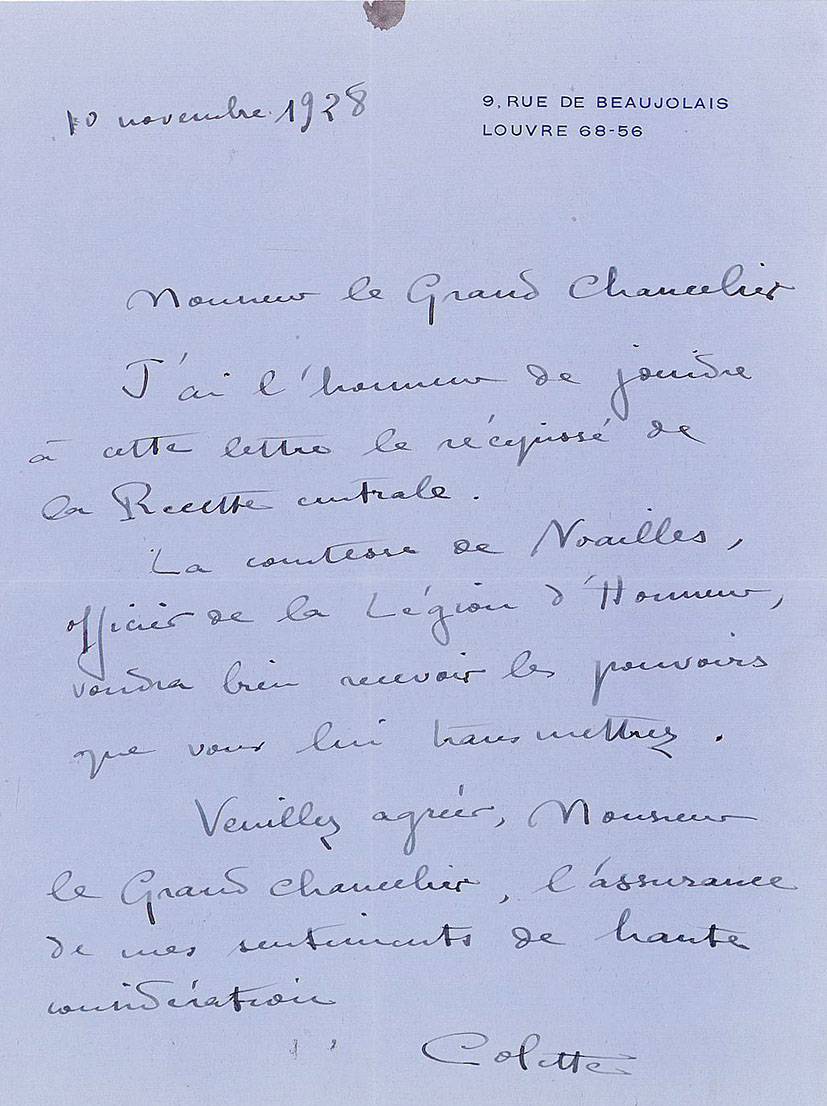 10 novembre 1928
9, RUE DE BEAUJOLAIS
LOUVRE 68-56
Monsieur le Grand Chancelier
J'ai l'honneur de joindre
à cette lettre le récépissé de
la Recette centrale.
La comtesse de Noailles,
officier de la Légion d'Honneur,
voudra bien recevoir les pouvoirs
que vous lui transmettrez.
Veuillez agréer, Monsieur
le Grand Chancelier, l'assurance
de mes sentiments de haute
considération
Colette